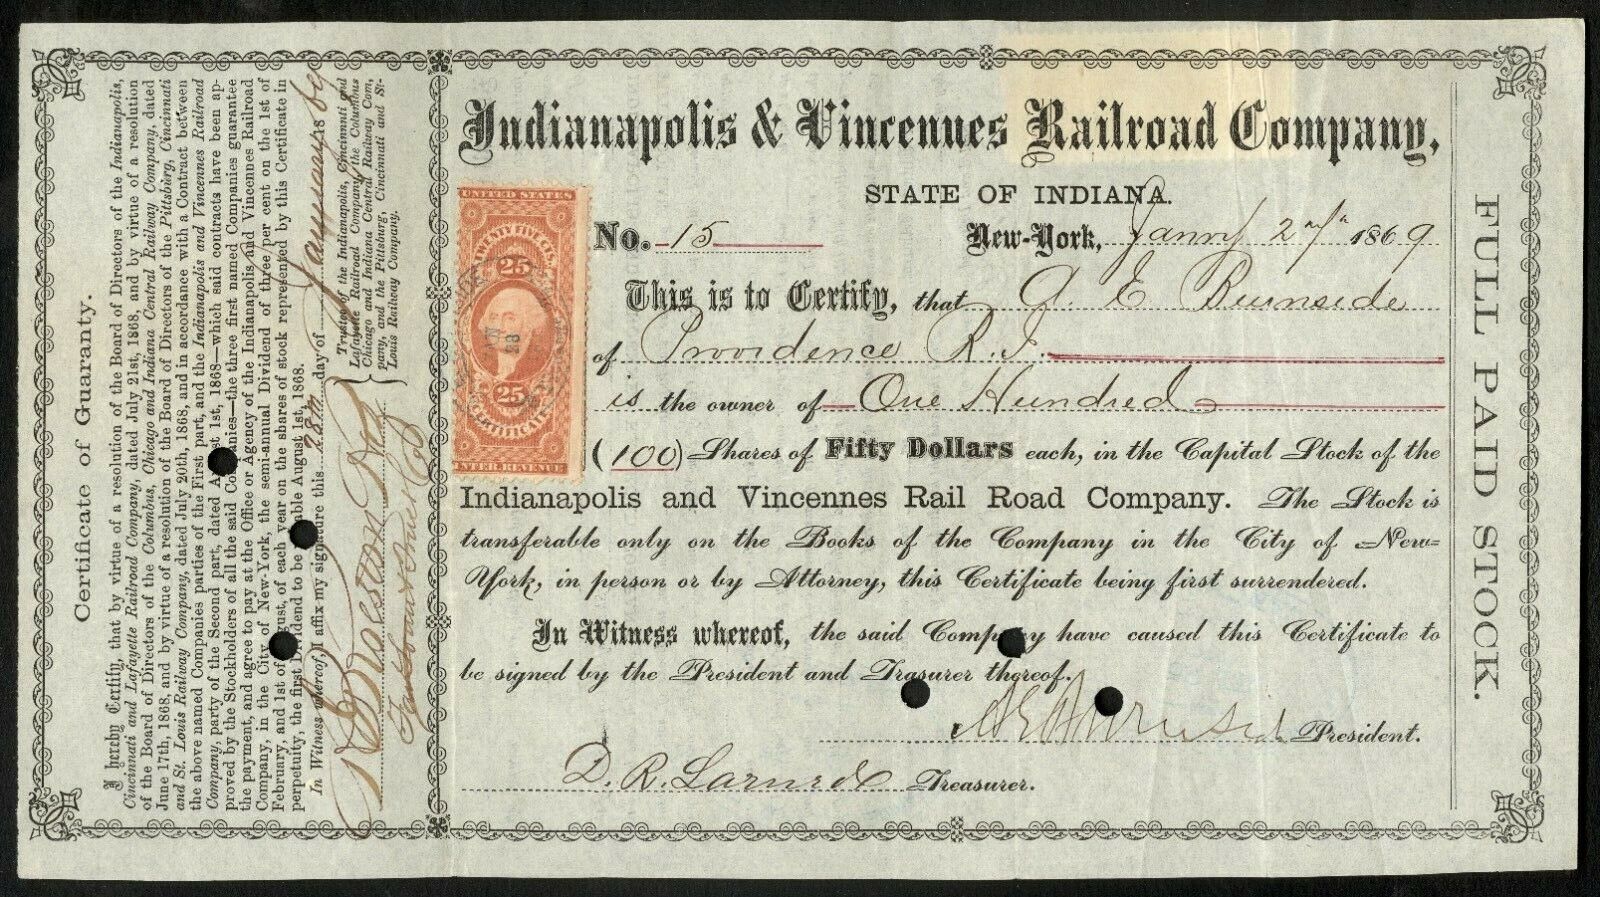 Certificate of Guaranty.
I hereby Certify, that by virtue of a resolution of the Board of Directors of the Indianapolis,
Cincinnati and Lafayette Railroad Company, dated July 21st, 1868, and by virtue of a resolution
of the Board of Directors of the Columbus, Chicago and Indiana Central Railway Company, dated
June 17th, 1868, and by virtue of a resolution of the Board of Directors of the Pittsburg, Cincinnati
and St. Louis Railway Company, dated July 20th, 1868, and in accordance with a Contract between
the above named Companies parties of the First part, and the Indianapolis and Vincennes Railroad
Company, party of the Second part, dated 1st, 1868—which said contracts have been ap-
proved by the Stockholders of all the said Companies—the three first named Companies guarantee
the payment, and agree to pay at the Office or Agency of the Indianapolis and Vincennes Railroad
Company, in the City of New-York, the semi-annual Dividend of three per cent on the 1st of
February, and 1st of August, of each year on the shares of stock represented by this Certificate in
perpetuity, the first Dividend to be payable August 1st, 1868.
In Witness whereof, I affix my signature this 28th day of January 1869
Trustee of the Indianapolis, Cincinnati and
Lafayette Railroad Company, the Columbus
Chicago and Indiana Central Railway Com,
pany, and the Pittsburg, Cincinnati and St-
Louis Railway Company.
Indianapolis & Vincennes Railroad Company,
STATE OF INDIANA.
UNITED STATES
TWENTY FIVE CTS.
25
25
CERTIFICATE
INTER. REVENUE
No. 15
New-York, Janry 27th 1869
This is to Certify, that A. E. Burnside
of Providence R. I.
is the owner of One Hundred
(100) Shares of Fifty Dollars each, in the Capital Stock of the
Indianapolis and Vincennes Rail Road Company. The Stock is
transferable only on the Books of the Company in the City of New-
York, in person or by Attorney, this Certificate being first surrendered.
In Witness whereof, the said Company have caused this Certificate to
be signed by the President and Treasurer thereof.
A E Burnside President.
D. R. Larned Treasurer.
FULL PAID STOCK.